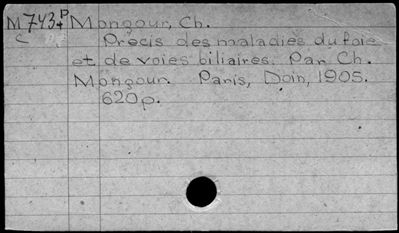 M743+P Mongour, Ch.
c Précis des maladies du foie
et de voies biliaires. Par Ch.
Mongour. Paris, Doin, 1905.
620p.